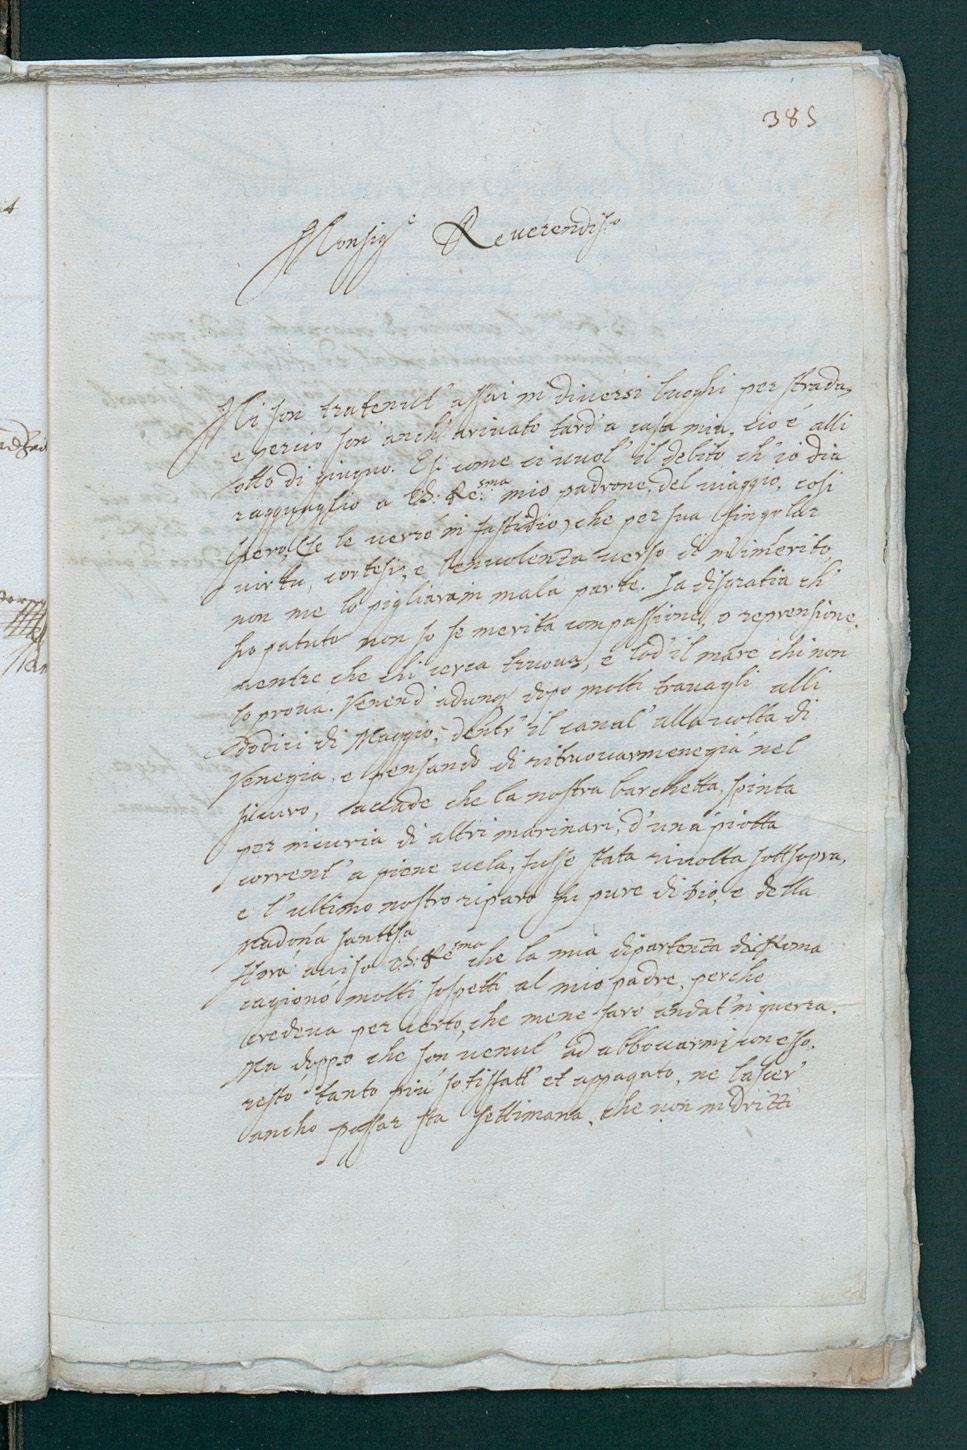 385
Monsig.e Reverendis.o
Mi son tratenut' assai in diversi luoghi per strada,
e percio son' anch' arivato tard' a casa mia, cio é alli
otto di giugno. Et come ci vuol' il debito ch' io dia
ragguaglio a V.S. Re.ma mio padrone, del viaggio, cosi
spero, se le verrò in fastidio, che per sua singolar
virtu, cortesia, e benvolenza verso di m' imerito
non me lo pigliara in mala parte. La disgratia ch'
ho patuto non so se merita compassione, o reprensione.
mentre che chi cerca truova, e lod' il mare chi non
lo prova. Venend' adunq dopo molti travagli alli
dodici di Maggio, dentr' il canal' alla volta di
Venegia, e pensando di ritruovarmene già nel
sicuro, accade che la nostra barchetta, spinta
per incuria di altri marinari, d' una piotta
corrent' a piene vela, fusse stata rivolta sottsopra,
e l' ultimo nostro riparo fu pure di Dio, e della
Madona santissa
Hora aviso V.S. Re.ma che la mia dipartenza di Roma
cagionó molti sospetti al mio padre, perche
credeva per certo, che mene saró andat' in guerra.
Ma doppo che son venut' ad abbocarmi con esso,
resto tanto piú sotisfatt' et appagato, ne lascer'
ancho passar sta settimana, che non in dritti